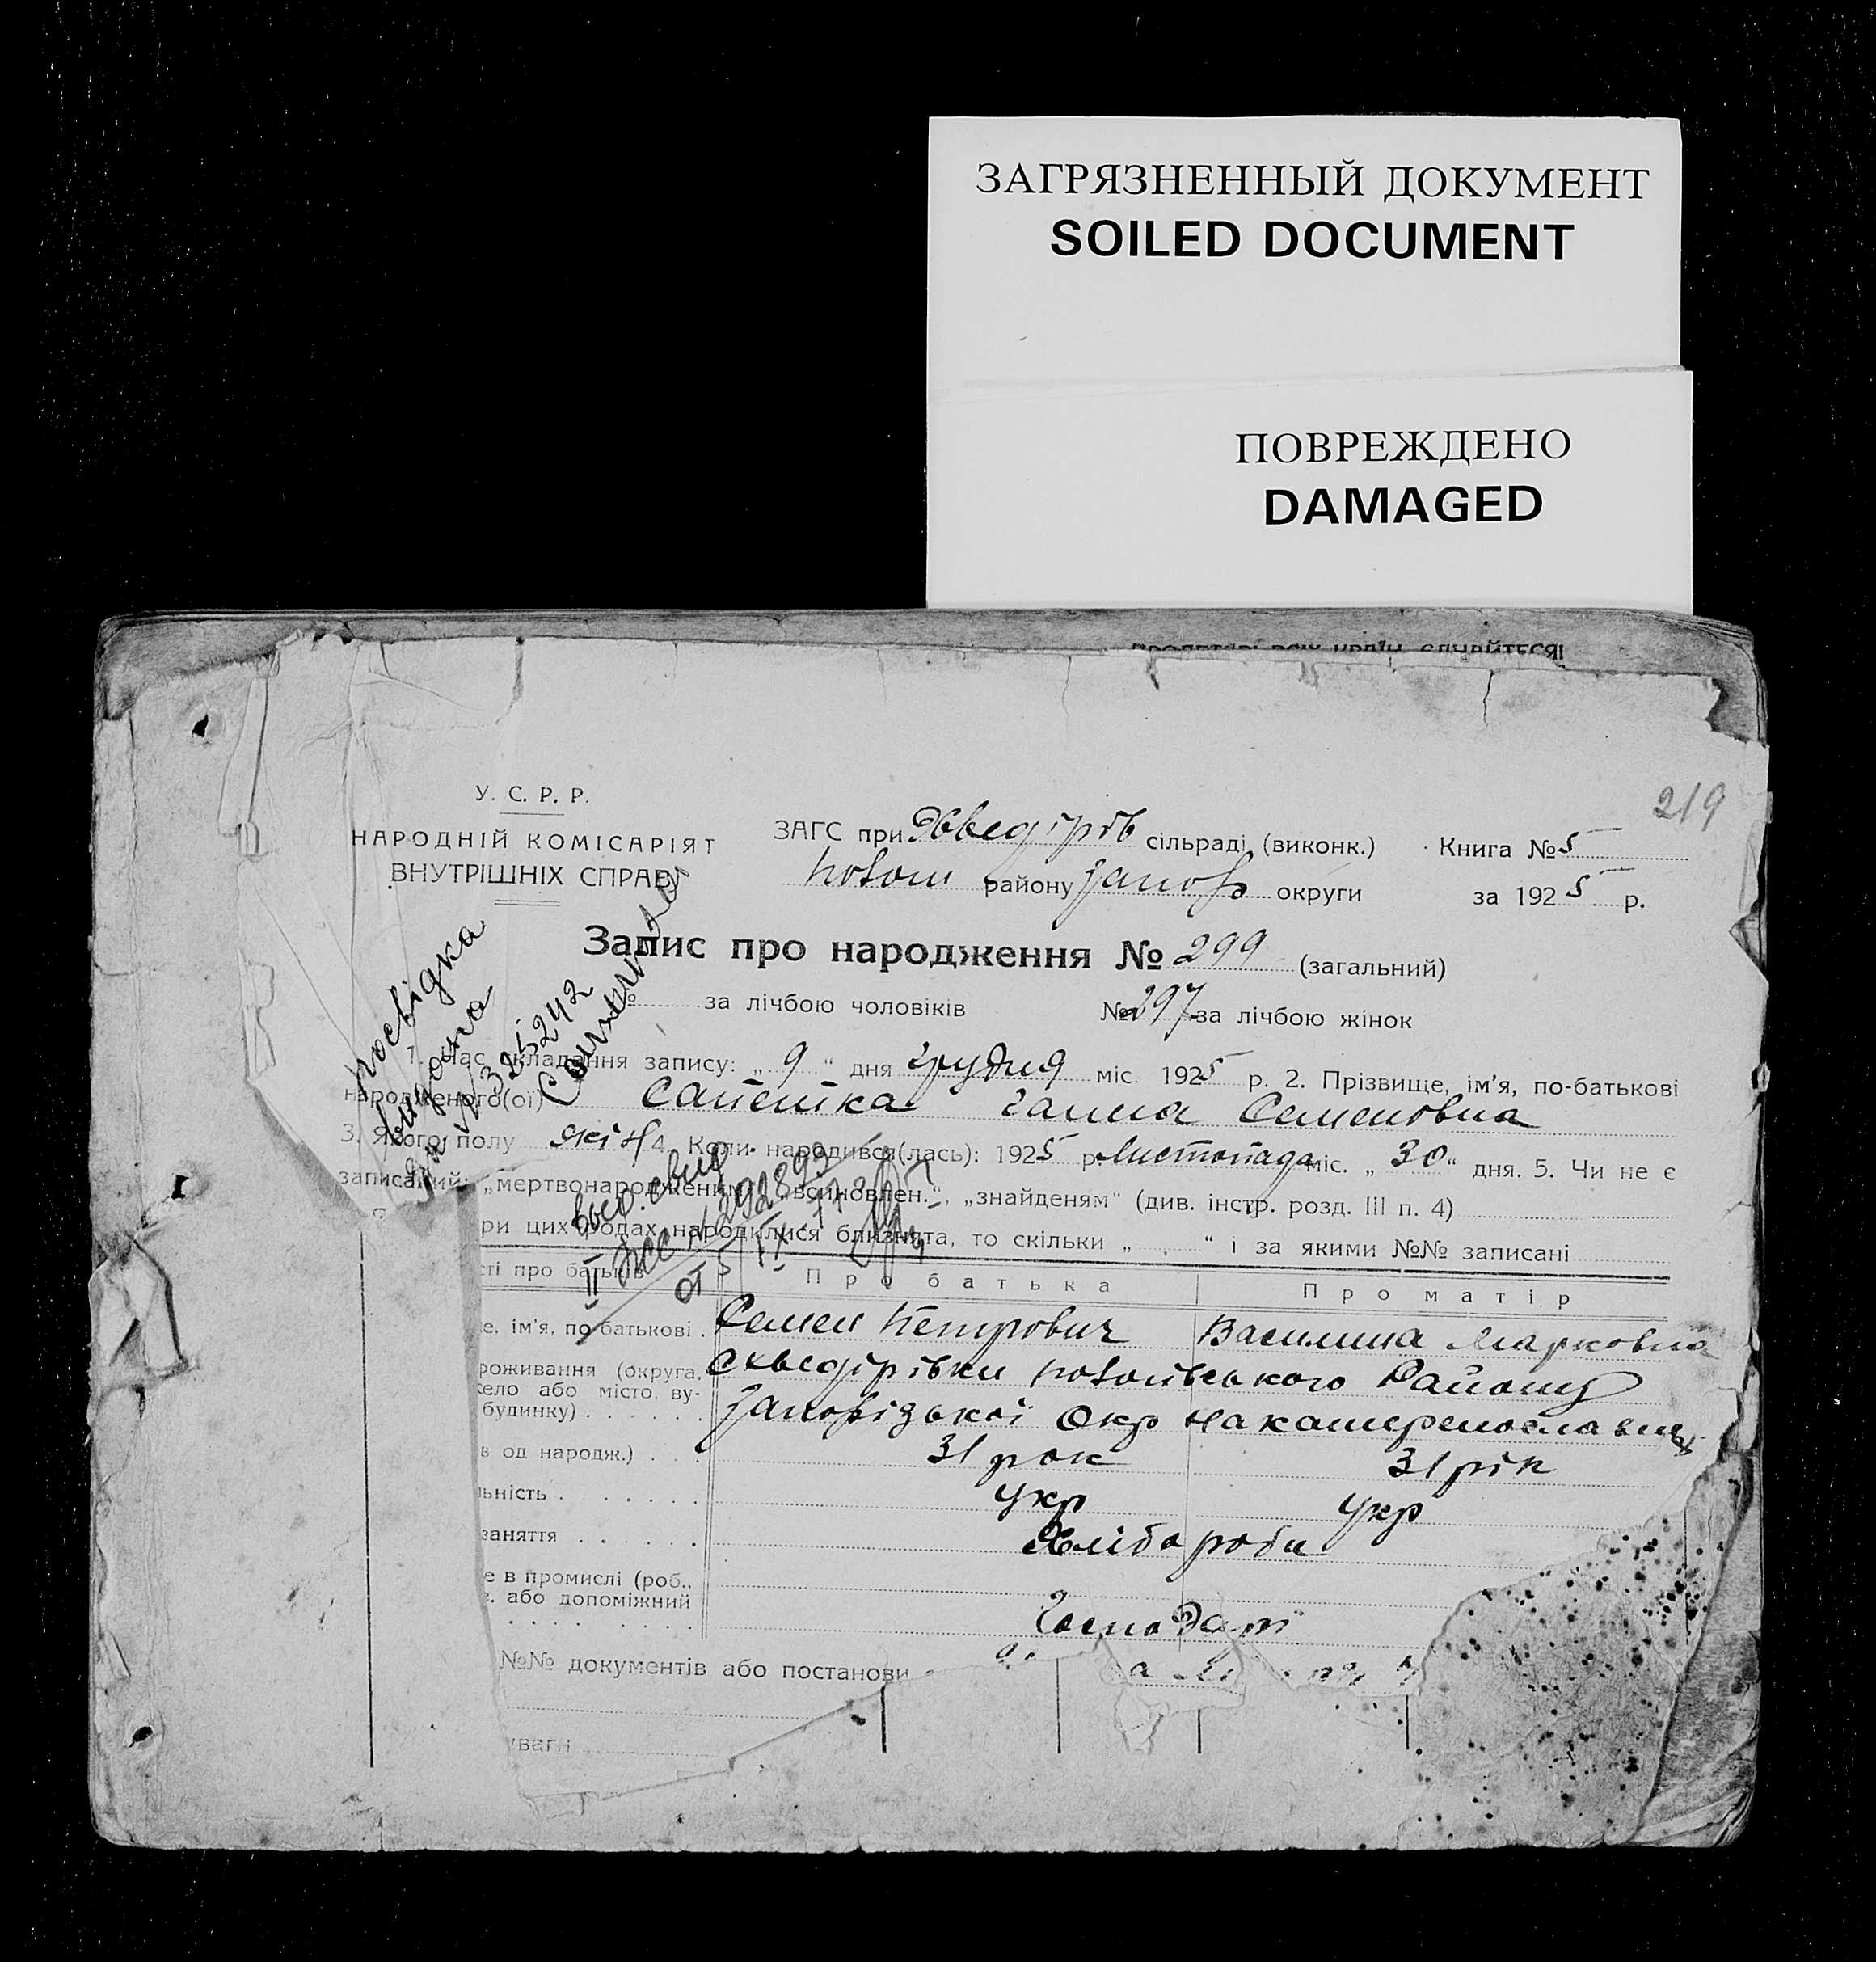 ЗАГРЯЗНЕННЫЙ ДОКУМЕНТ
SOILED DOCUMENT
ПОВРЕЖДЕНО
DAMAGED
219
У. С. Р. Р.
НАРОДНІЙ КОМІСАРІЯТ
ВНУТРІШНІХ СПРАВ
ЗАГС при сільраді (виконк.)
району Запоріз округи
Книга № 5
за 1925 р.
Запис про народження № 299 (загальний)
№ за лічбою чоловіків № 297 за лічбою жінок
посвідка
видана
№ 325242
1. Час складання запису: „ 9 “ дня грудня міс. 1925 р. 2. Прізвище, ім'я, по-батькові
народженого(ої) Сапешка Ганна Семеновна
3. Якого полу жін 4. Коли народився(лась): 1925 р. Листопада міс. „ 30 “ дня. 5. Чи не є
записаний: „мертвонародженим“, „всиновлен.“, „знайденям“ (див. інстр. розд. III п. 4)
ри цих родах народилися близнята, то скільки „ “ і за якими №№ записані
II
от 5/IX
сті про батьків Про батька Про матір
е, ім'я, по батькові Семен Петрович Василина Марковна
роживання (округа,
село або місто, ву-
будинку) району
Запорізької Окр на катеренославщ
в од народж.) 31 рок 31 рік
льність укр укр
заняття Хлібороби
е в промислі (роб.,
с. або допоміжний
Господарі
№№ документів або постанови
уваги